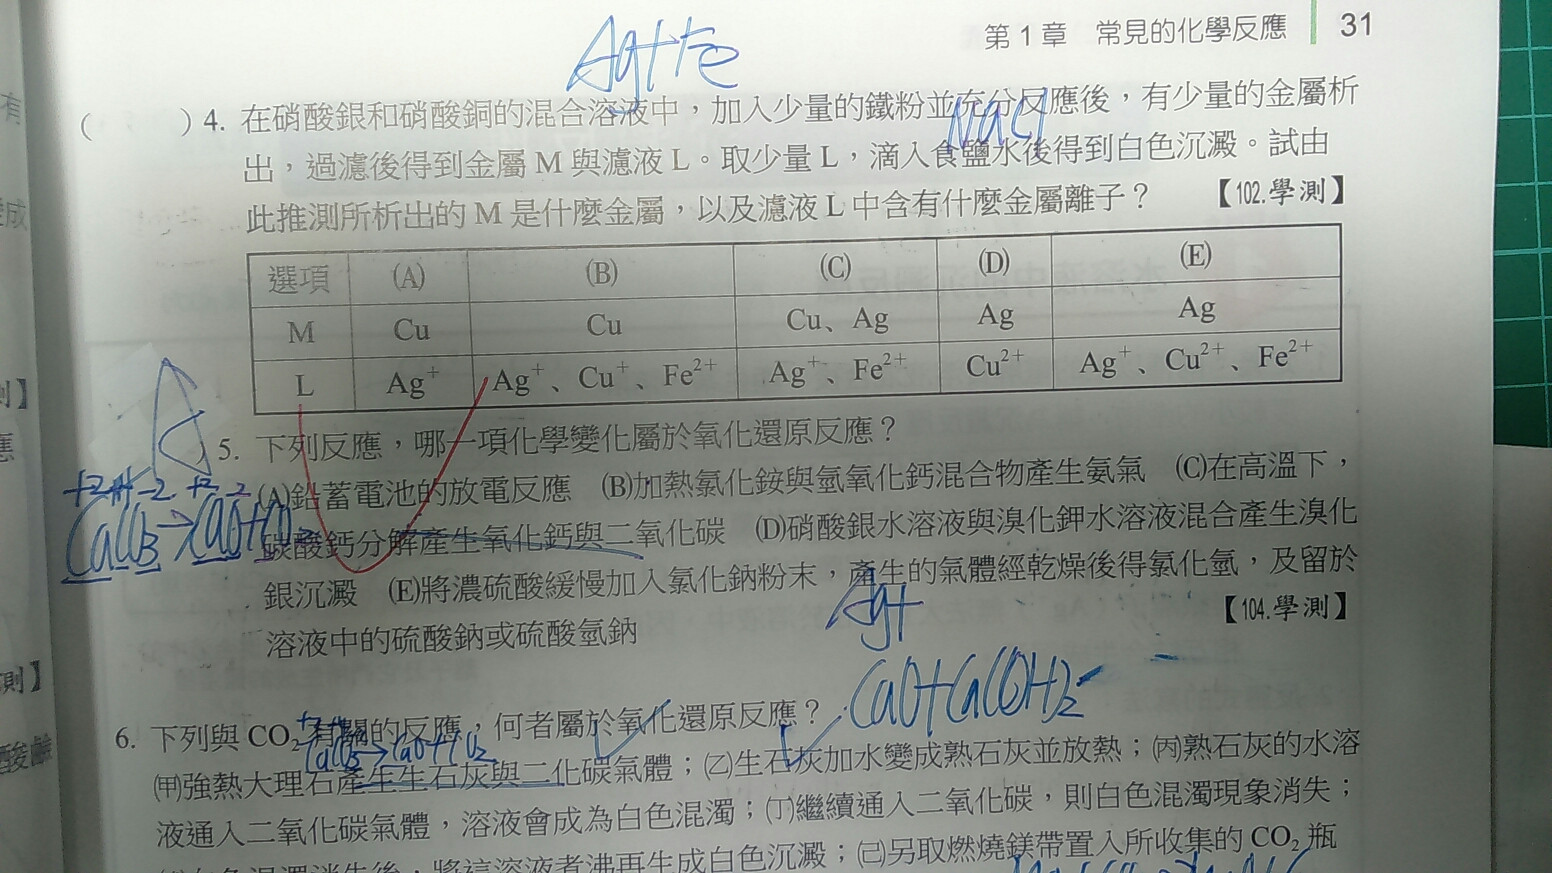 第 1 章　常見的化學反應　31
Ag++Fe
(　　) 4. 在硝酸銀和硝酸銅的混合溶液中，加入少量的鐵粉並充分反應後，有少量的金屬析
NaCl
出，過濾後得到金屬 M 與濾液 L。取少量 L，滴入食鹽水後得到白色沉澱。試由
此推測所析出的 M 是什麼金屬，以及濾液 L 中含有什麼金屬離子？　【102.學測】
選項　(A)　(B)　(C)　(D)　(E)
M　Cu　Cu　Cu、Ag　Ag　Ag
L　Ag⁺　Ag⁺、Cu⁺、Fe²⁺　Ag⁺、Fe²⁺　Cu²⁺　Ag⁺、Cu²⁺、Fe²⁺
A
) 5. 下列反應，哪一項化學變化屬於氧化還原反應？
(A)鉛蓄電池的放電反應　(B)加熱氯化銨與氫氧化鈣混合物產生氨氣　(C)在高溫下，
CaCO₃→CaO+CO₂
碳酸鈣分解產生氧化鈣與二氧化碳　(D)硝酸銀水溶液與溴化鉀水溶液混合產生溴化
銀沉澱　(E)將濃硫酸緩慢加入氯化鈉粉末，產生的氣體經乾燥後得氯化氫，及留於
Ag+
溶液中的硫酸鈉或硫酸氫鈉　【104.學測】
CaO+Ca(OH)₂
6. 下列與 CO₂ 有關的反應，何者屬於氧化還原反應？
CaCO₃→CaO+CO₂
(甲)強熱大理石產生生石灰與二化碳氣體；(乙)生石灰加水變成熟石灰並放熱；(丙)熟石灰的水溶
液通入二氧化碳氣體，溶液會成為白色混濁；(丁)繼續通入二氧化碳，則白色混濁現象消失；
白色混濁消失後，將這溶液煮沸再生成白色沉澱；(己)另取燃燒鎂帶置入所收集的 CO₂ 瓶